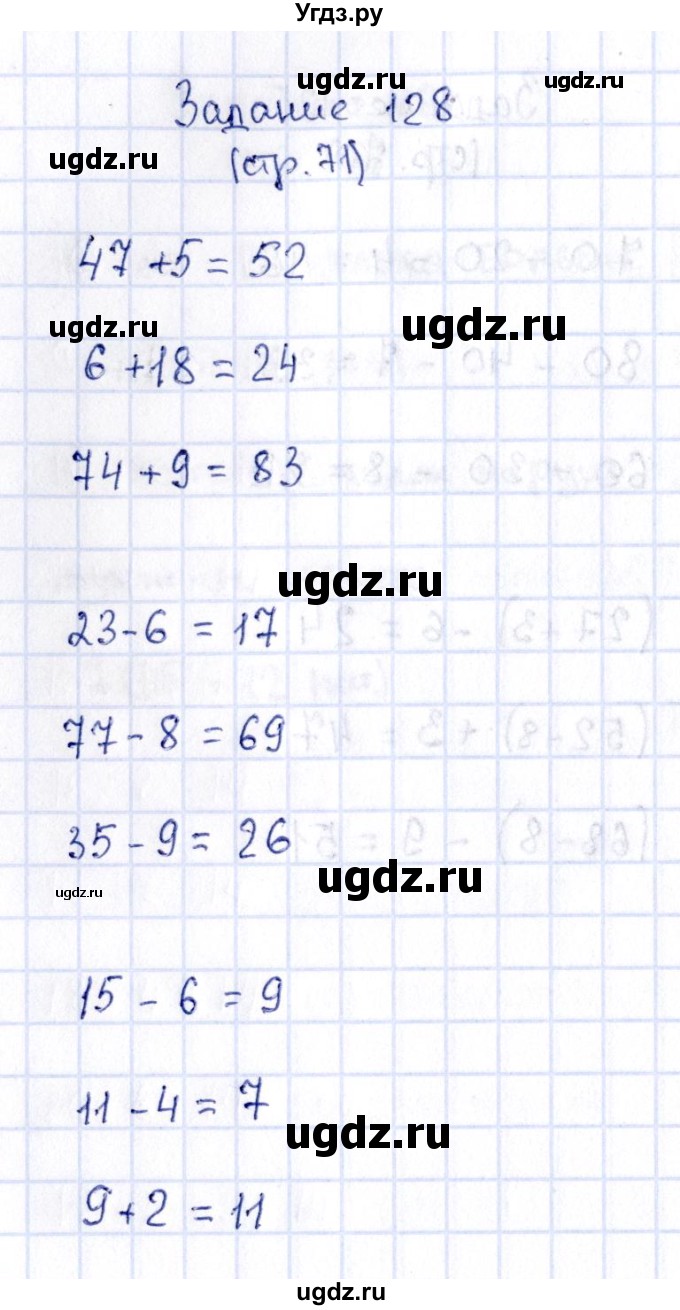 Угдз.ру
ugdz.ru
ugdz.ru
Задание 128
ugdz.ru
(стр. 71)
47 + 5 = 52
ugdz.ru
ugdz.ru
6 + 18 = 24
74 + 9 = 83
ugdz.ru
23 - 6 = 17
77 - 8 = 69
35 - 9 = 26
ugdz.ru
ugdz.ru
15 - 6 = 9
11 - 4 = 7
ugdz.ru
9 + 2 = 11
ugdz.ru